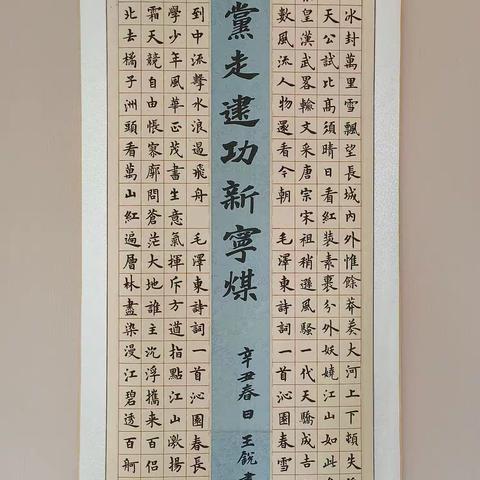 冰封萬里雪飄望長城內外惟餘莽莽大河上下頓失
天公試比高須晴日看紅裝素裹分外妖嬈江山如此
皇漢武略輸文采唐宗宋祖稍遜風騷一代天驕成吉
數風流人物還看今朝 毛澤東詩詞一首沁園春雪
黨走建功新寧煤
辛丑春日王銳書
到中流擊水浪遏飛舟 毛澤東詩詞一首沁園春長
學少年風華正茂書生意氣揮斥方遒指點江山激揚
霜天競自由悵寥廓問蒼茫大地誰主沉浮攜來百侶
北去橘子洲頭看萬山紅遍層林盡染漫江碧透百舸